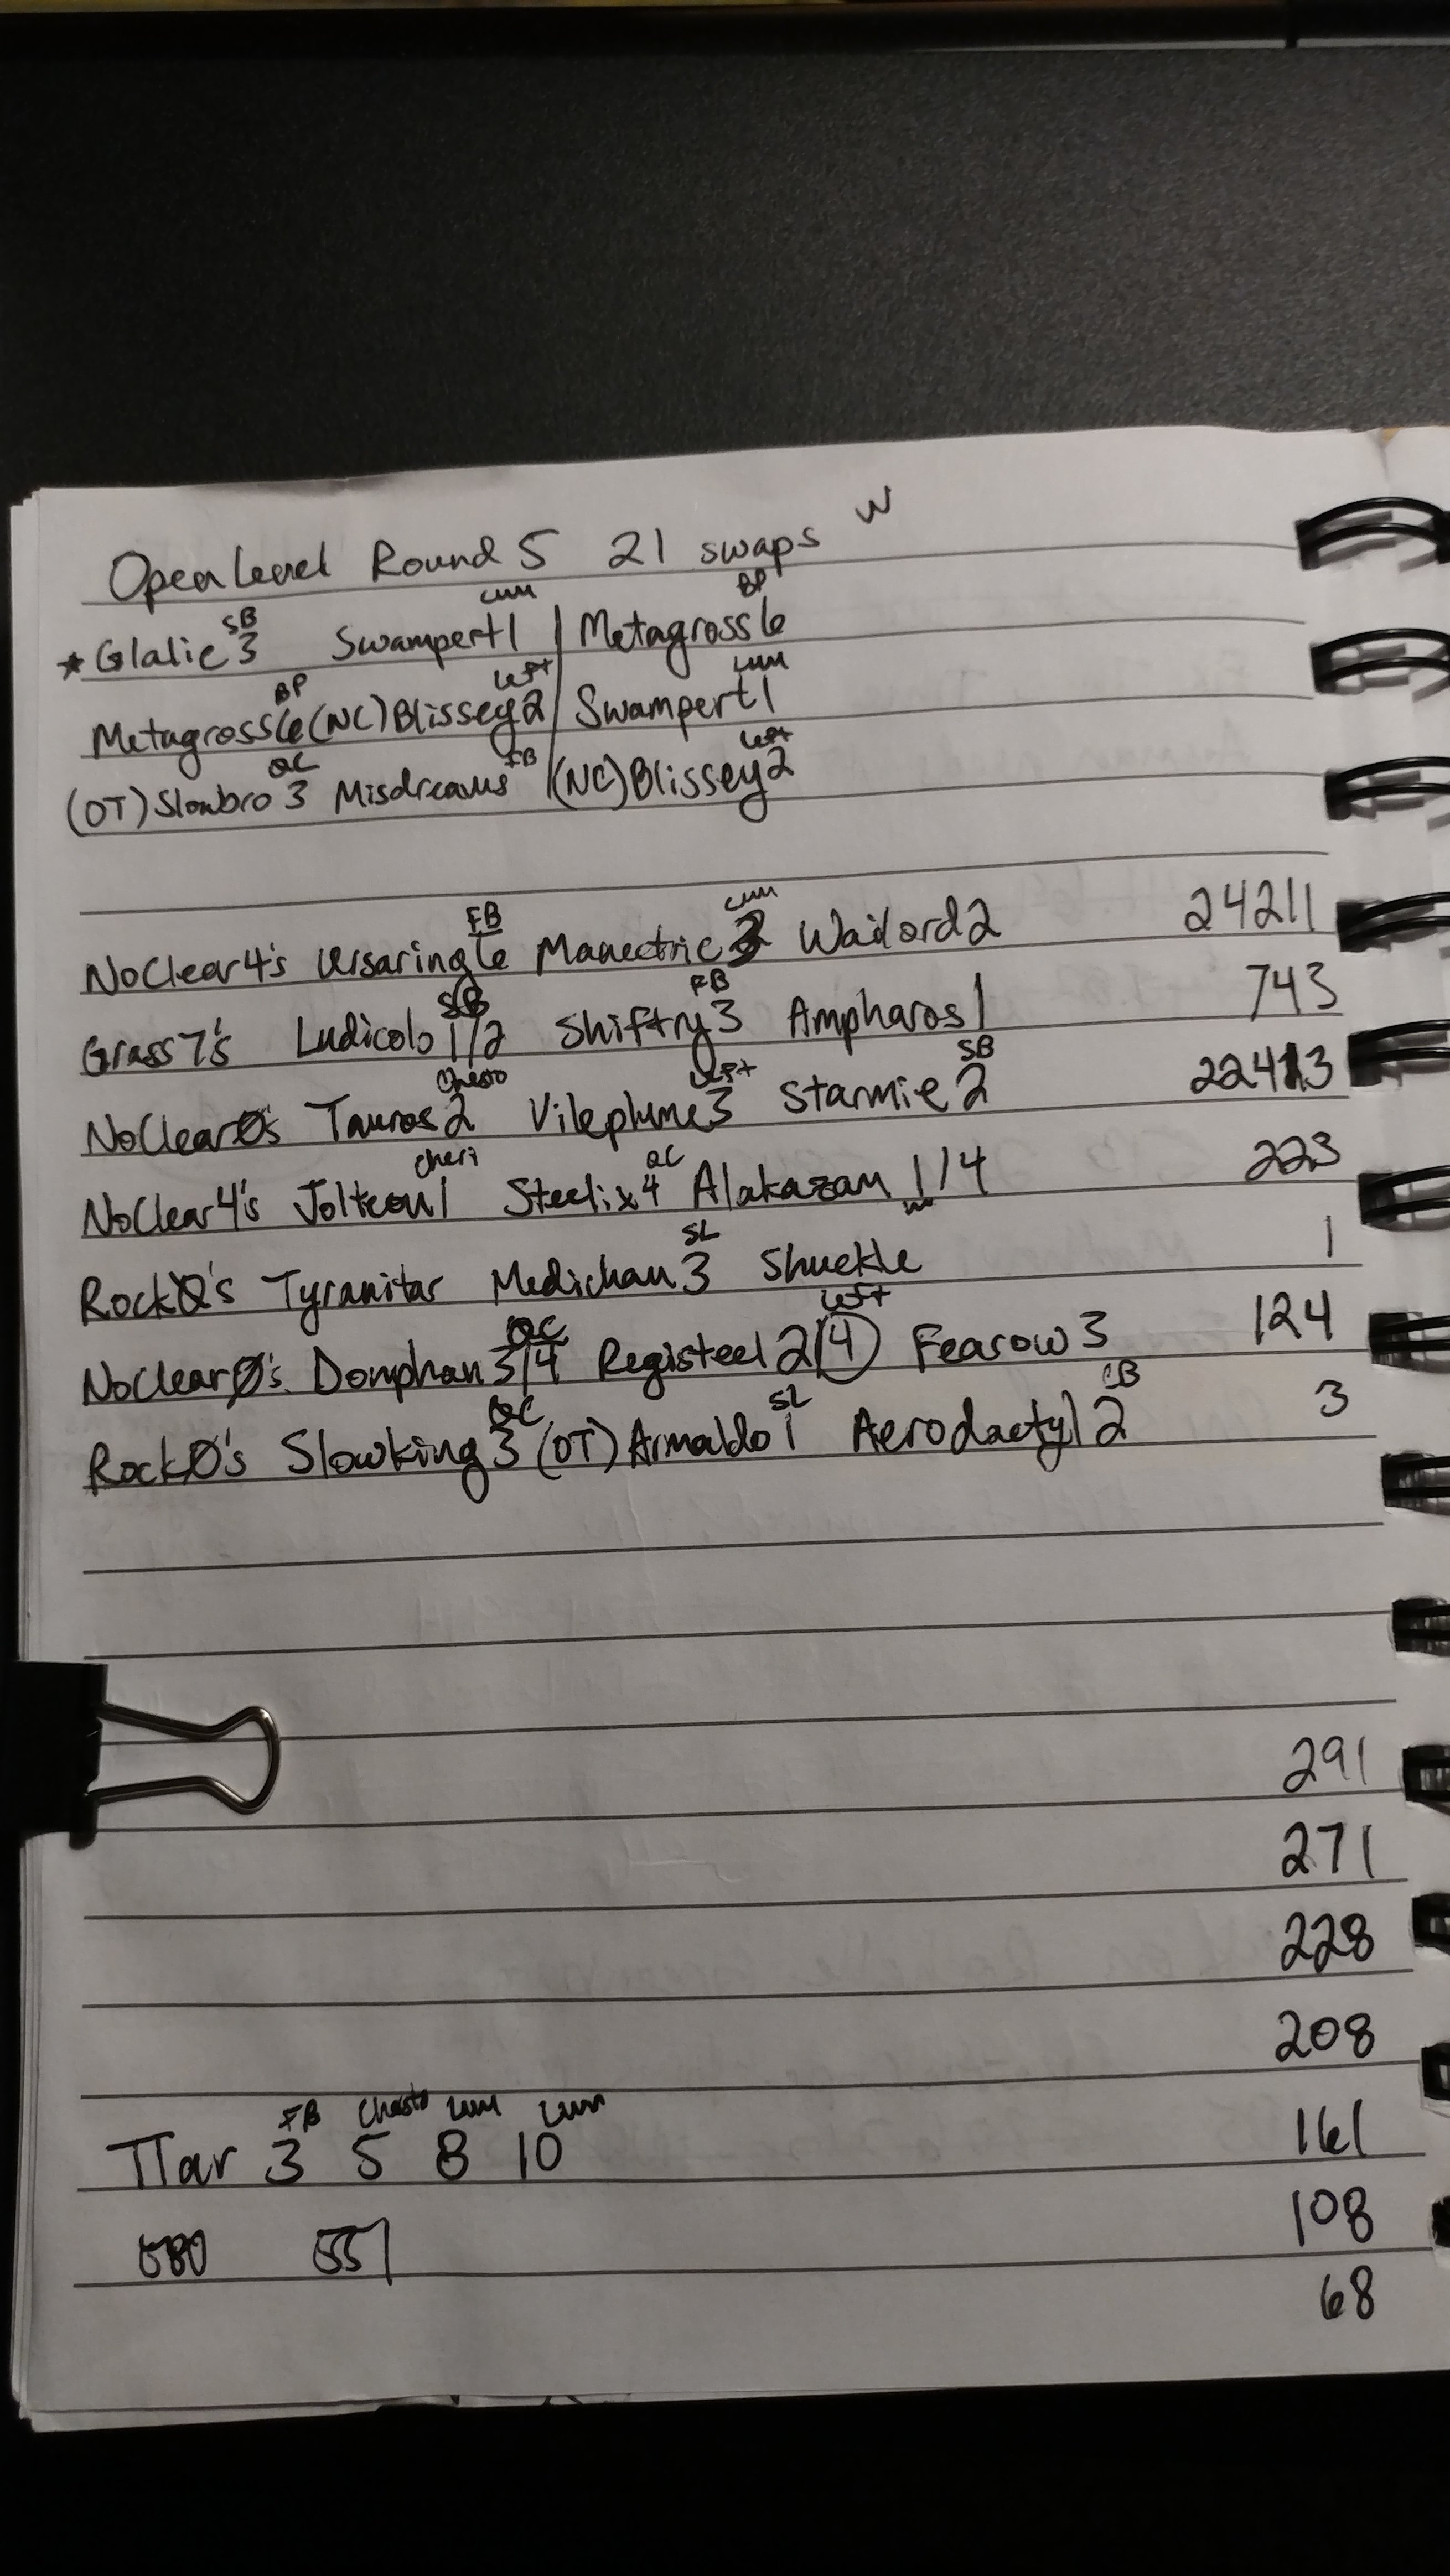 Open Level Round 5 21 swaps W
SB Lum BP
*Glalie3 Swampert1 | Metagross6
BP Left Lum
Metagross6 (NC)Blissey2 | Swampert1
QC FB Left
(OT)Slowbro3 Misdreavus | (NC)Blissey2
FB Lum
NoClear4's Ursaring6 Manectric3 Wailord2 24211
SB FB
Grass7's Ludicolo1/2 Shiftry3 Ampharos1 743
Chesto Left SB
NoClear0's Tauros2 Vileplume3 Starmie2 22413
Cheri QC
NoClear4's Jolteon1 Steelix4 Alakazam1/4 223
SL
Rock0's Tyranitar Medicham3 Shuckle 1
QC Left
NoClear0's Donphan3/4 Registeel2/4 Fearow3 124
QC SL CB
Rock0's Slowking3 (OT)Armaldo1 Aerodactyl2 3
291
271
228
208
FB Chesto Lum Lum
TTar 3 5 8 10 161
108
68